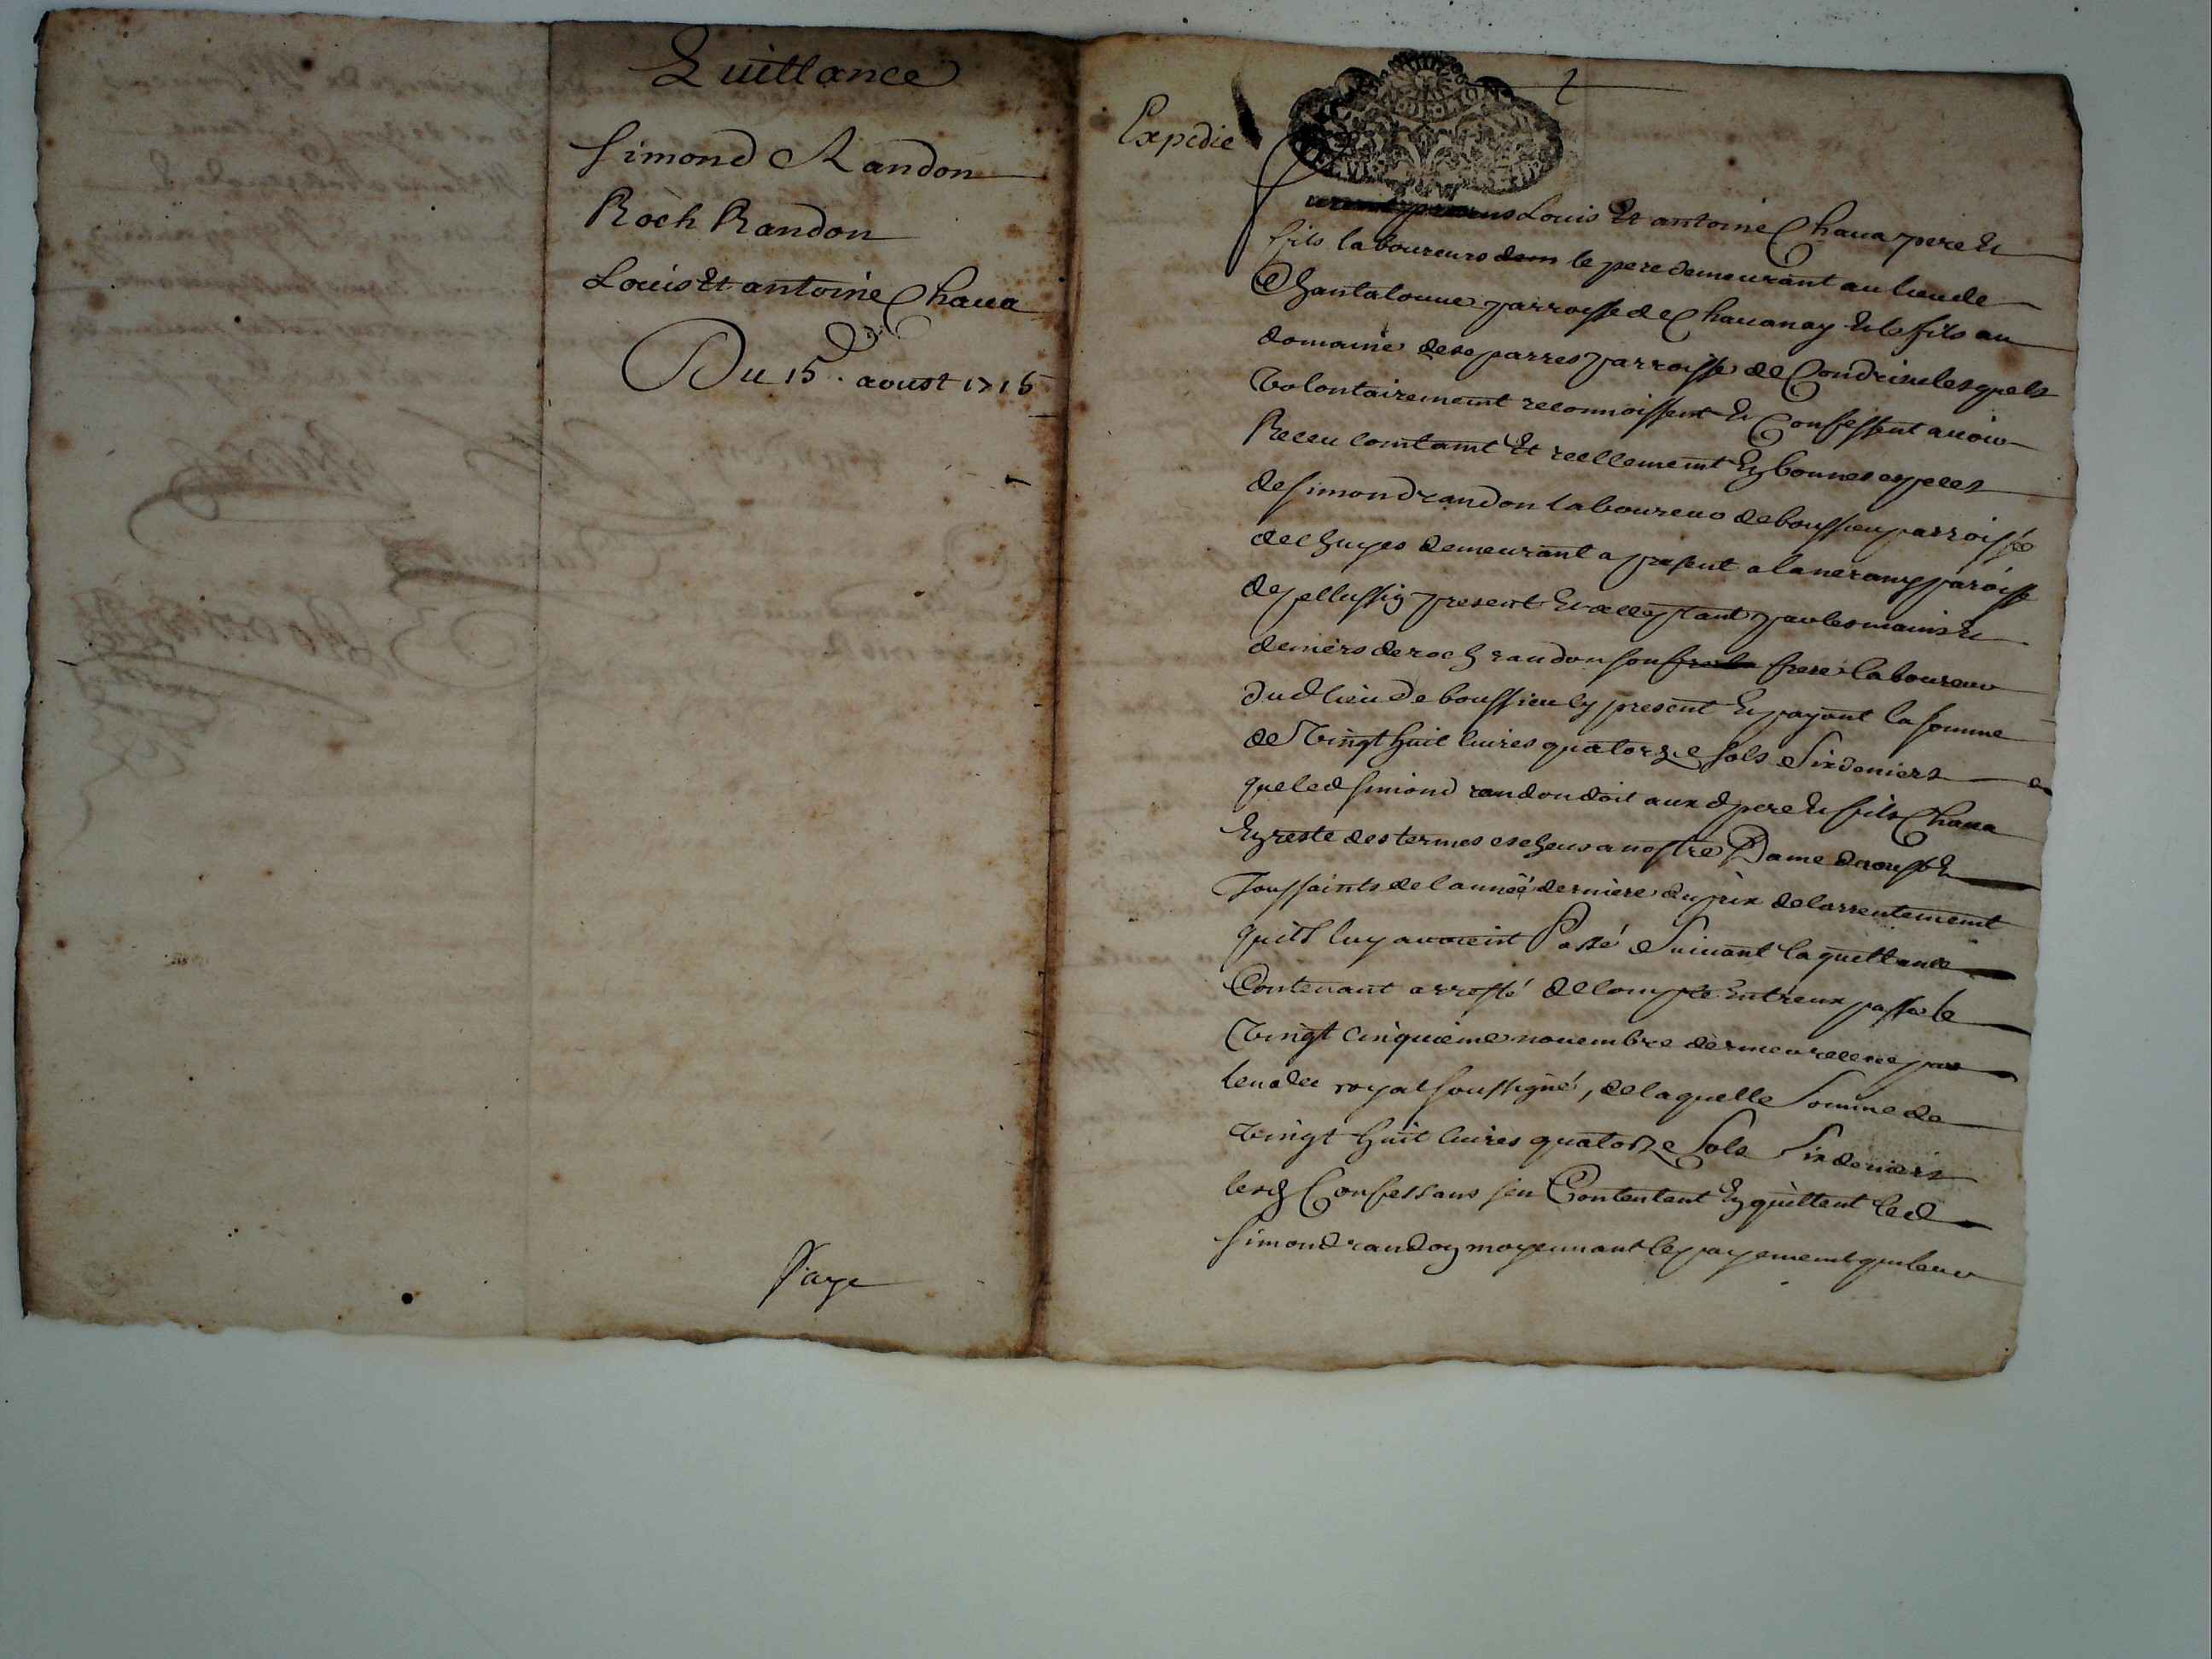 Quittance
Simond Randon
Roch Randon
Louis Et antoine Chaua
Du 15. aoust 1715
Faye
Expedie
Louis Et antoine Chaua pere Et
fils laboureurs dem le pere demeurant au lieu de
Chantaloune parroisse de Chauanay Et le fils au
domaine parroisse de Condrieu lesquels
Volontairement reconnoissent Et Confessent auoir
Receu Comtamt Et reellement En bonnes especes
de simond randon laboureur de boussieu parroisse
de Chuyes demeurant a present a parroisse
de pellussin present Et acceptant par les mains Et
deniers de roch randon son frere laboureur
dud lieu de boussieu Cy present Et payant la somme
de Vingt huit liures quatorze sols Six deniers
que led simond randon doit aux d pere Et fils Chaua
En reste des termes escheus a nostre Dame daoust Et
Toussaints de lannéé derniere du prix de larrentement
quils luy auoient Passé Suiuant la quittance
Contenant arresté de Compte Entreux passé le
Vingt Cinquieme nouembre dernier receue par
le no.re royal soussigné, de laquelle Somme de
Vingt huit liures quatorze Sols Six deniers
lesd Confessans sen Contentent En quittent led
Simond randon moyennant le payement quil leur